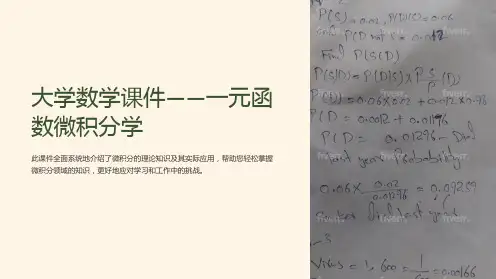 大学数学课件——一元函
数微积分学
此课件全面系统地介绍了微积分的理论知识及其实际应用，帮助您轻松掌握
微积分领域的知识，更好地应对学习和工作中的挑战。
P(S)=0.02, P(D|S)=0.06
P(D not S = 0.012
Find P(S|D)
P(S|D) = P(D|S) x P S (D)
P(D) = 0.06x0.02 + 0.012x0.98
P(D = 0.0012 + 0.01176
P(D = 0.01296 -
year Probability
0.06 x 0.02 / 0.01296 = 0.09259
Virus = 1, 600 = 1 / 600 = 0.00166